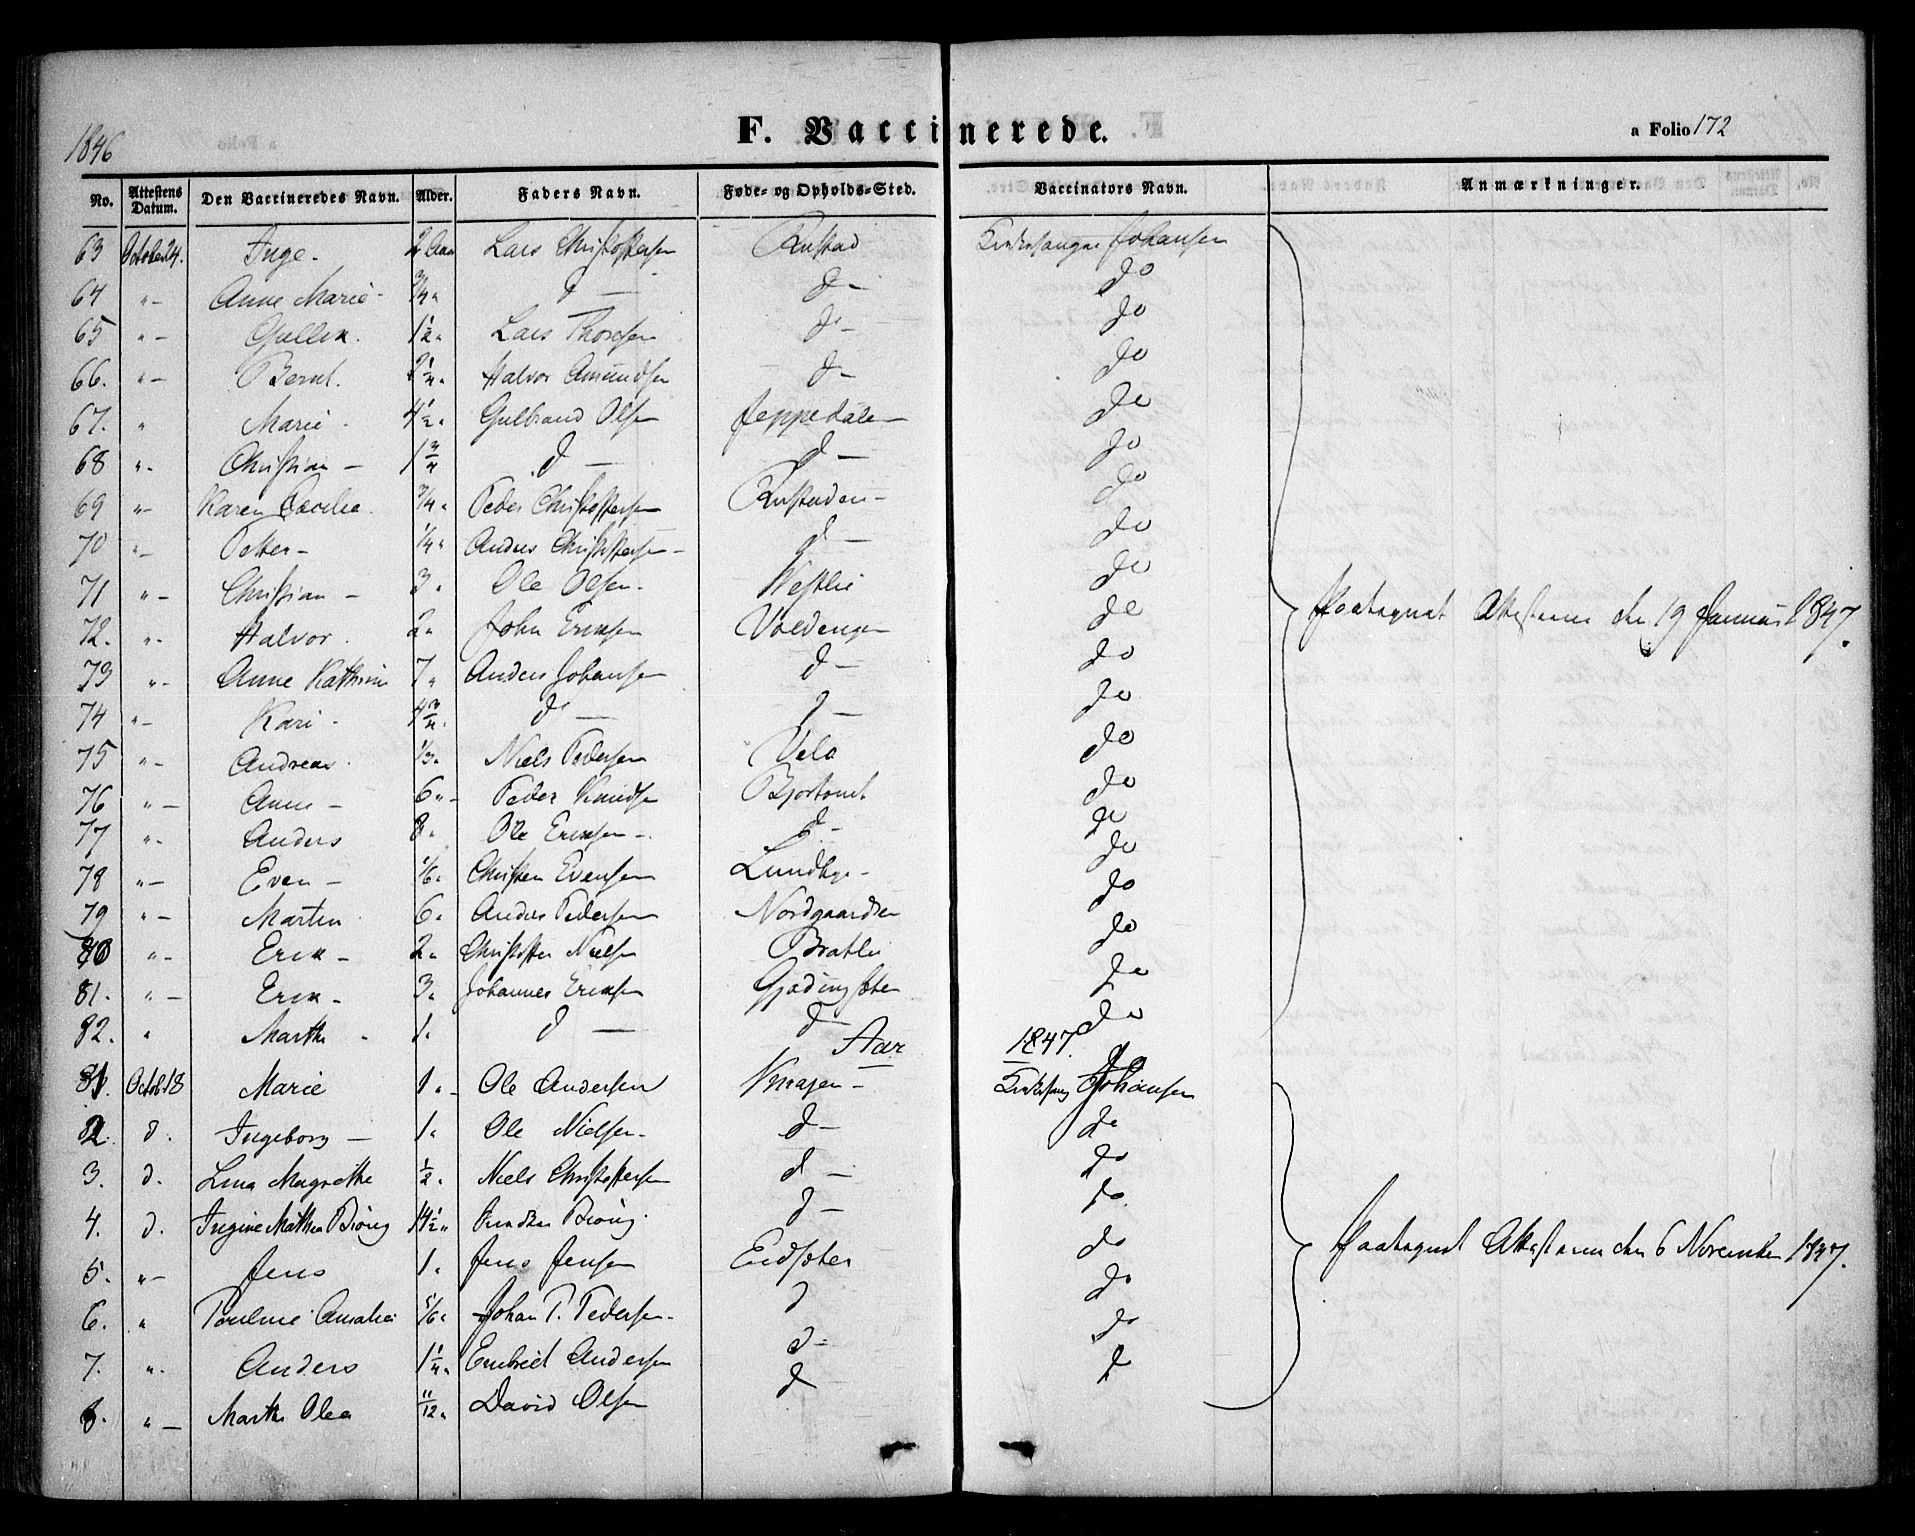 1846
F. Vaccinerede.
a Folio 172
No. Attestens Datum. Den Vaccineredes Navn. Alder. Faders Navn. Føde- og Opholds-Sted. Vaccinators Navn. Anmærkninger.
63 October 24. Inge. 2 Aar Lars Christoffersen Rustad Kirkesanger Johansen
64 "– Anne Marie– 3/4 " d – d – do
65 "– Gullik. 1 1/2 " Lars Thoresen d – do
66. "– Bernt. 2 1/4 " Halvor Amundsen d – do
67. " Marie. 4 1/2 " Gulbrand Olsen Jeppedalen do
68 "– Christian – 1 3/4 d – d – do
69 "– Karen Cecilie. 3/4 " Peder Christoffersen Rustaden– do
70 "– Petter– 1/4 " Anders Christoffersen– d – do
71 "– Christian – 3 " Ole Olsen. Westlie do
72. "– Halvor. 2 " John Eriksen Voldengen do
73 "– Anne Kathrine 7 " Anders Johansen d – do
74 "– Kari – 4 3/4 " d – d – do
75 "– Andreas. 1/3 " Niels Pedersen Velo do
76 "– Anne – 6 "– Peder Knudsen do
77 "– Anders 8 " Ole Eriksen –. d – do
78 "– Even – 1/6 " Christen Evensen Lundbye– do
79 "– Martin 6 " Anders Pedersen Nordgaardsen do
80 "– Erik – 2 " Christoffer Nielsen Bratlie do
81. "– Erik – 3 " Johannes Eriksen Gjødingsæter do
82. " Marthe – 1 " d – d – do
Paategnet Attesterne den 19 Januar 1847.
Aar 1847.
1. Octob 18 Marie 1 "– Ole Andersen Knajen – Kirkesang Johansen
2. d. Ingeborg – 1 " Ole Nielsen– d – do
3. d. Lina Magrethe 1/2 " Niels Christoffersen d – do
4. d. Ingine Mathea Biöng 14 1/2 " Biöng. d – do
5. "– Jens 1 " Jens Jensen Eidsæter do
6. " Pouline Amalie 5/6 " Johan P. Pedersen– d do
7. ". Anders 1 1/4 " Embret Andersen d– do
8. "– Marthe Olea 11/12 " David Olsen d d
Paategnet Attesterne den 6 November 1847.